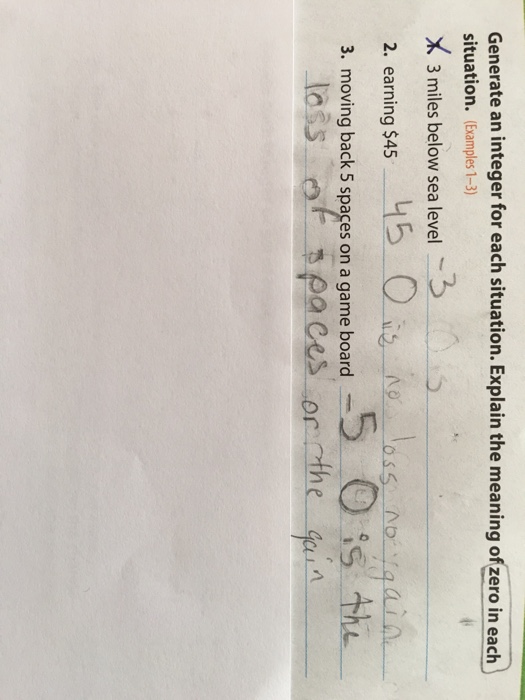 Generate an integer for each situation. Explain the meaning of zero in each
situation. (Examples 1–3)
3 miles below sea level -3
2. earning $45 45 0 is no loss no gain
3. moving back 5 spaces on a game board -5 0 is the
loss of spaces or the gain